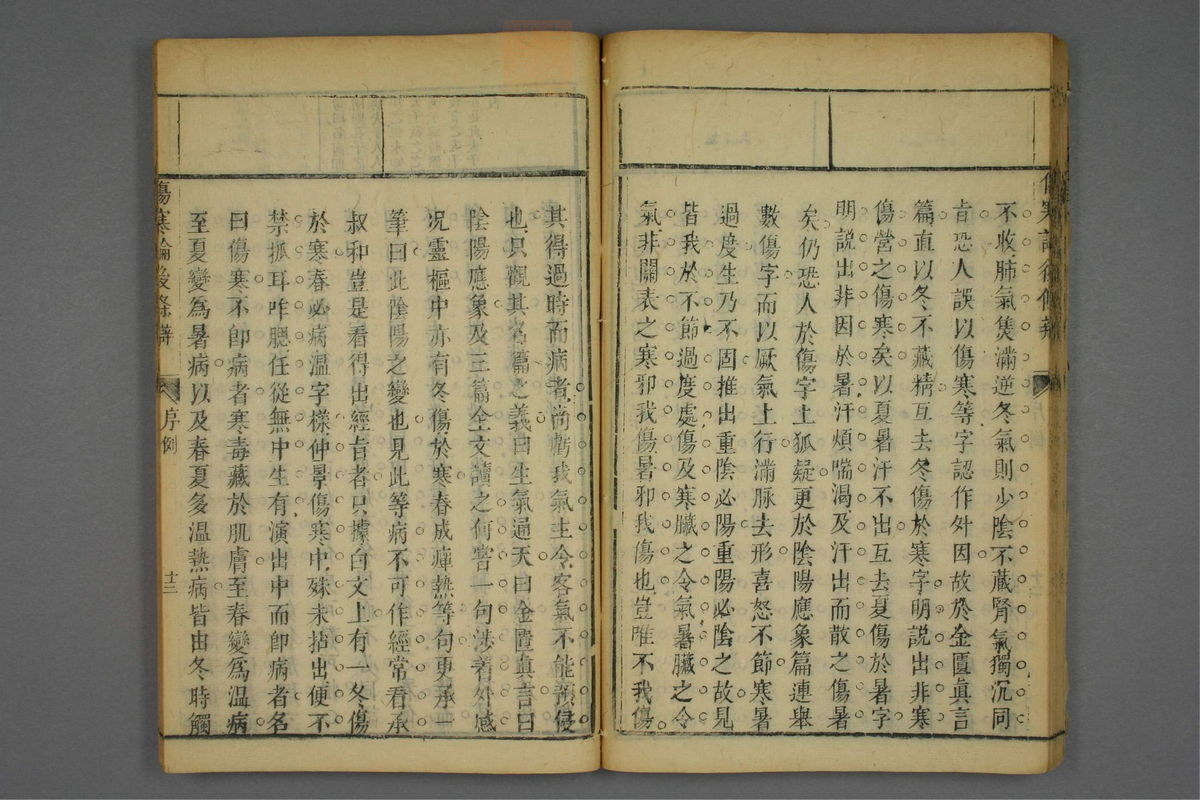 不收肺氣焦滿逆冬氣則少陰不藏腎氣獨沉同
旨恐人誤以傷寒等字認作外因故於金匱眞言
篇直以冬不藏精互去冬傷於寒字明說出非寒
傷營之傷寒矣以夏暑汗不出互去夏傷於暑字
明說出非因於暑汗煩喘渴及汗出而散之傷暑
矣仍恐人於傷字上狐疑更於陰陽應象篇連舉
數傷字而以厥氣上行滿脉去形喜怒不節寒暑
過度生乃不固推出重陰必陽重陽必陰之故見
皆我於不節過度處傷及寒臟之令氣暑臟之令
氣非關表之寒邪我傷暑邪我傷也豈唯不我傷
其得過時而病者尚虧我氣主令客氣不能預侵
也只觀其名篇之義曰生氣通天曰金匱眞言曰
陰陽應象及三篇全文讀之何嘗一句涉着外感
况靈樞中亦有冬傷於寒春成瘅熱等句更承一
筆曰此陰陽之變也見此等病不可作經常看承
叔和豈是看得出經旨者只據白文上有一冬傷
於寒春必病溫字樣仲景傷寒中殊未拈出便不
禁抓耳咋腮任從無中生有演出中而卽病者名
曰傷寒不卽病者寒毒藏於肌膚至春變爲溫病
至夏變爲暑病以及春夏多溫熱病皆由冬時觸
傷寒論後條辨
序例
十三